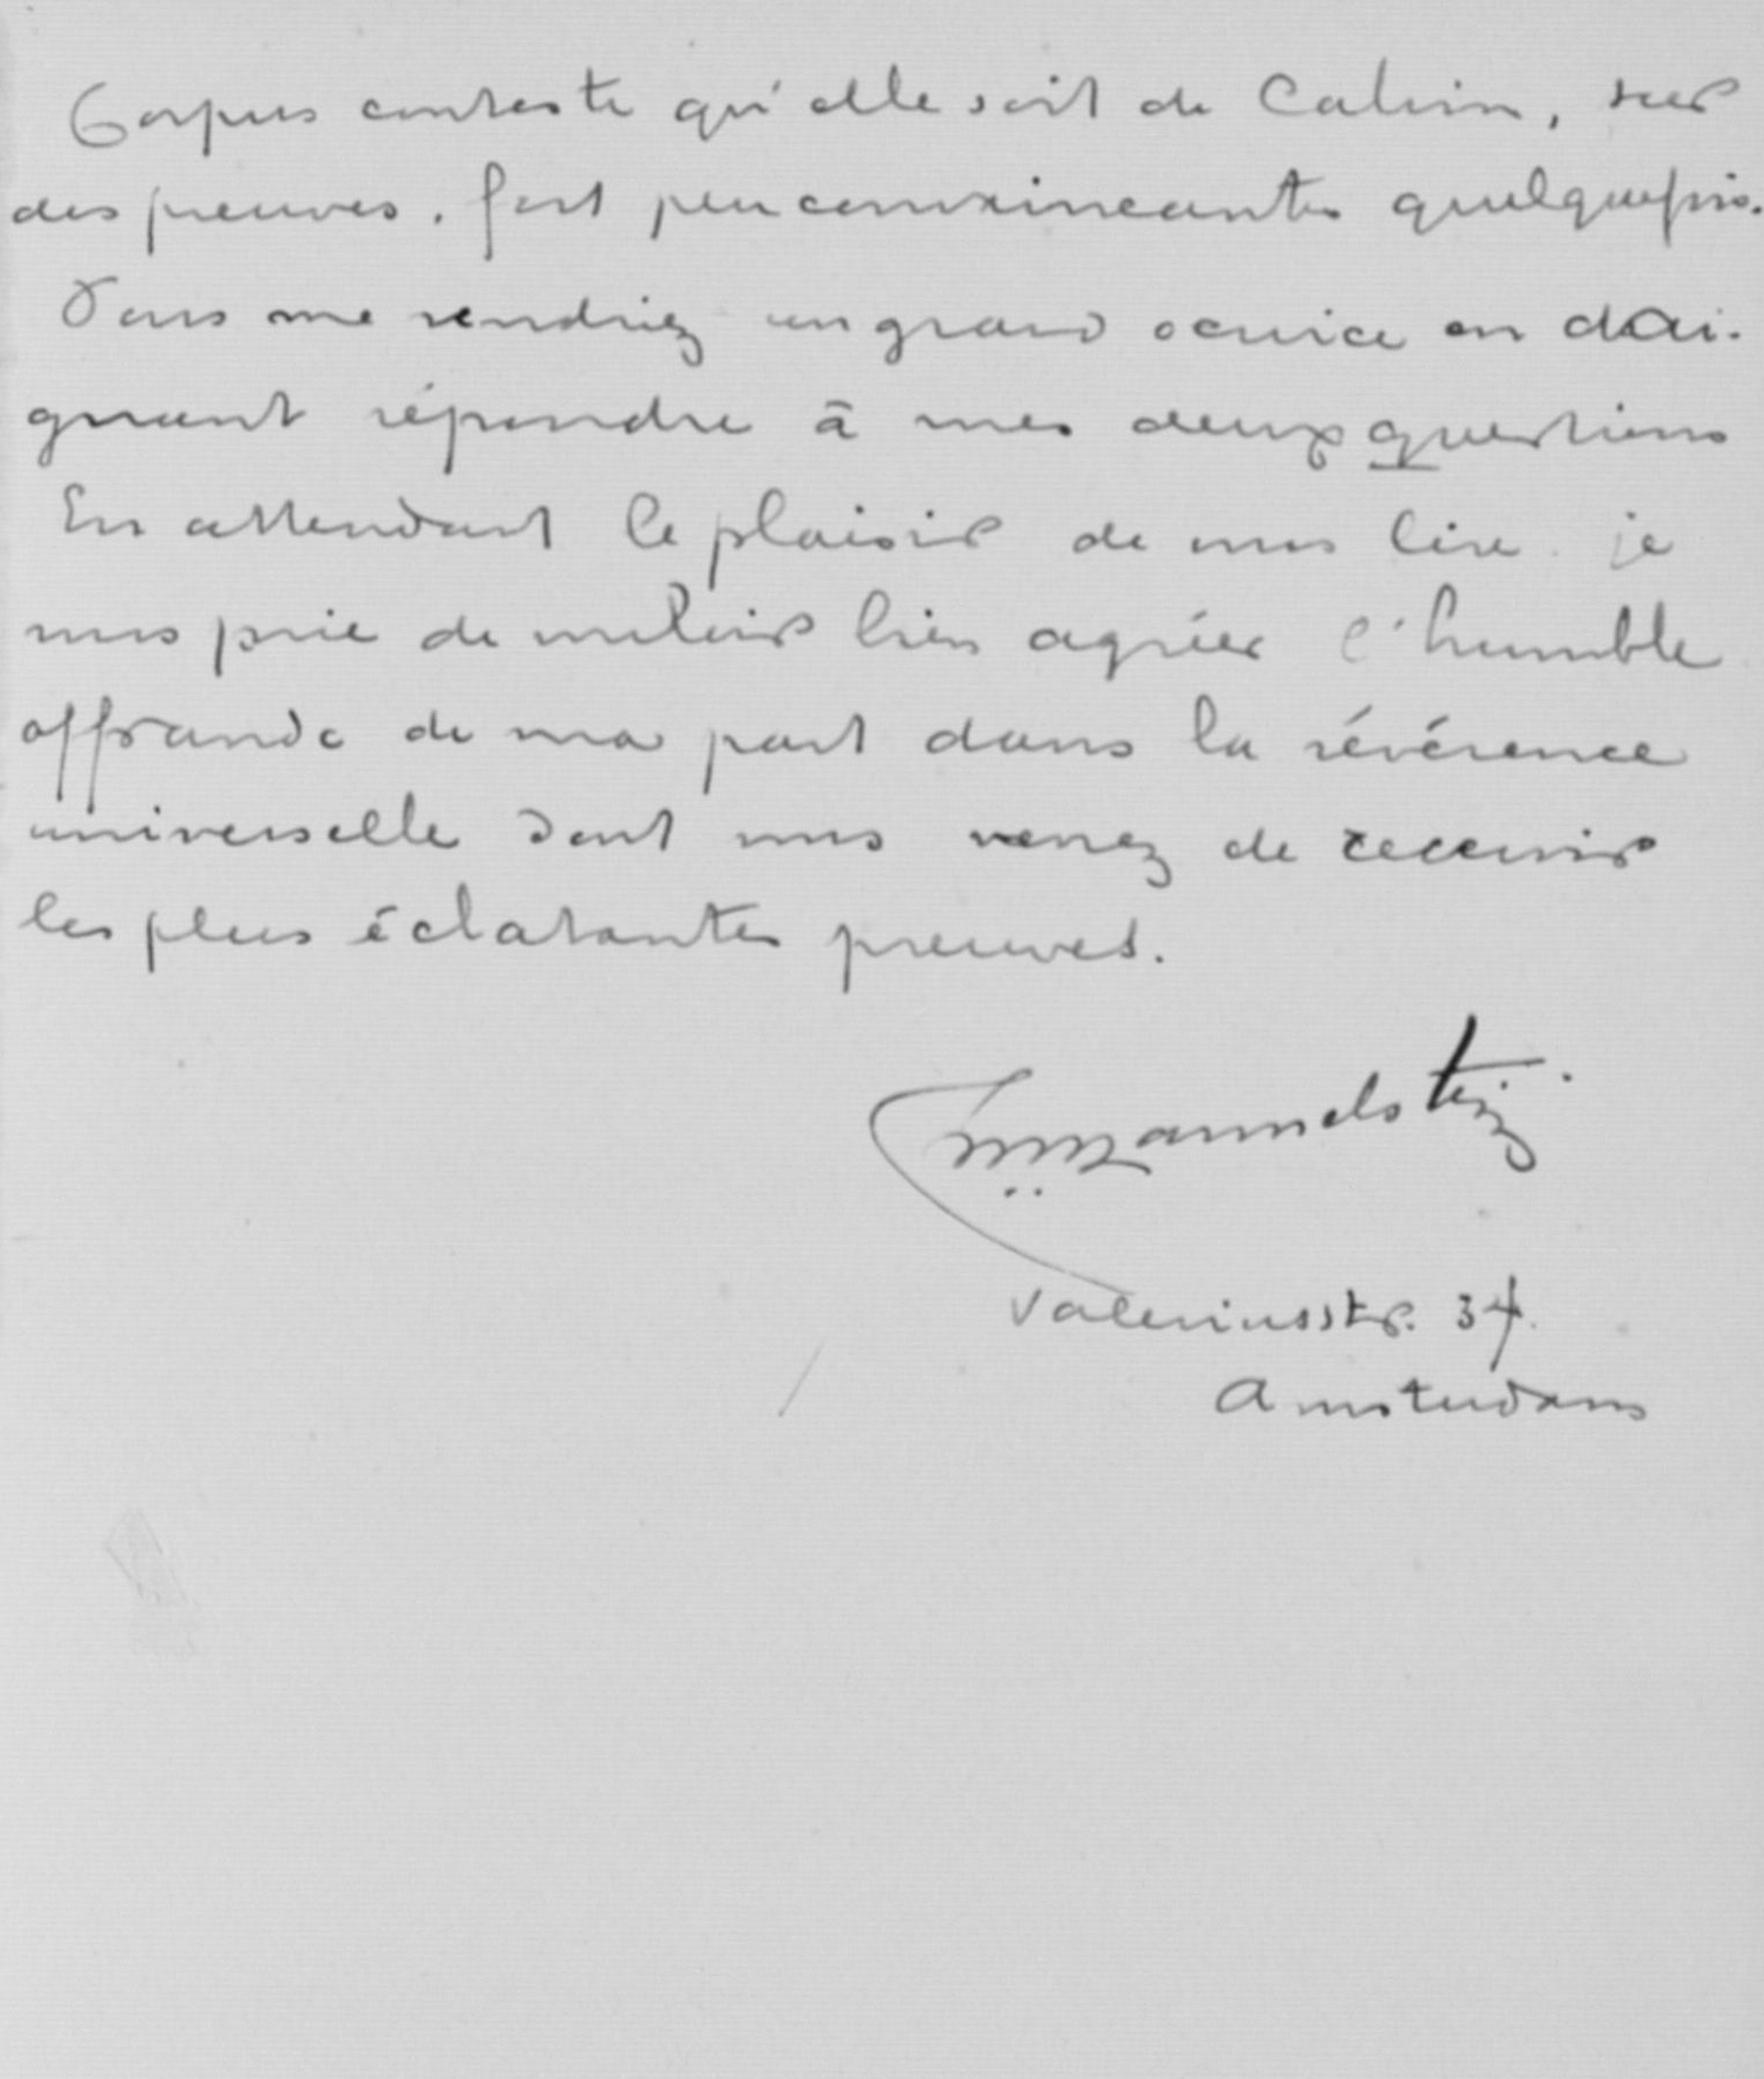 Corpus conteste qu'elle soit de Calvin, sur
des preuves. fort peu convaincantes quelquefois.
Vous me rendriez un grand service en dai-
gnant répondre à mes deux questions
En attendant le plaisir de vous lire. je
vous prie de vouloir bien agréer l'humble
offrande de ma part dans la révérence
universelle dont vous venez de recevoir
les plus éclatantes preuves.
Valeriusstr. 37.
Amsterdam